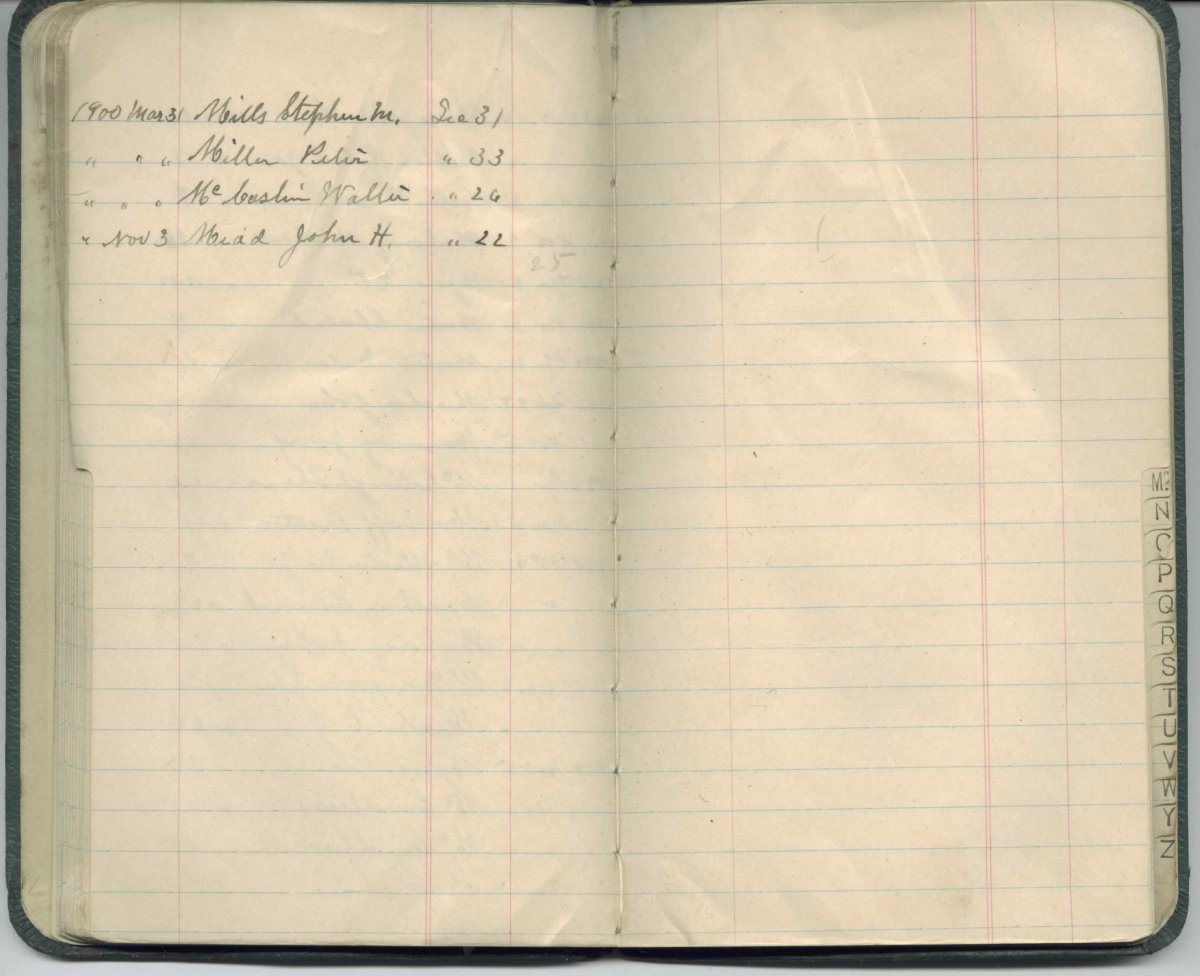 1900 Mar 31 Mills Stephen M. Sec 31
" " " Miller Peter " 33
" " " Mc Caslin Walter " 26
" Nov 3 Mead John H. " 22
25
Mc
N
O
P
Q
R
S
T
U
V
W
Y
Z